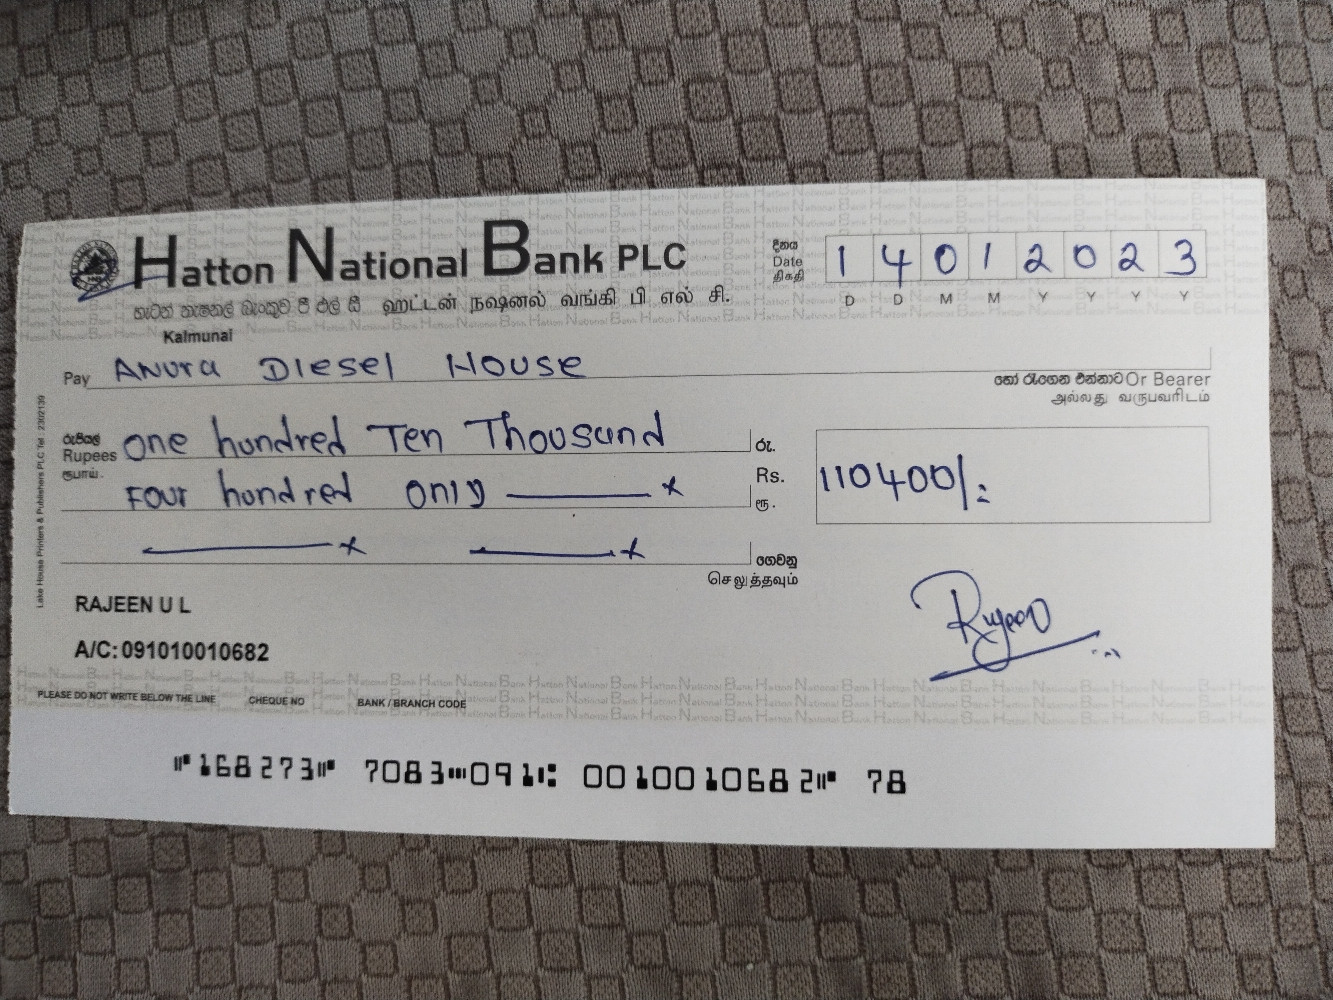 Hatton National Bank PLC
හැටන් නැෂනල් බෑංකුව පී එල් සී ஹட்டன் நஷனல் வங்கி பி எல் சி.
Kalmunai
දිනය
Date
திகதி
1 4 0 1 2 0 2 3
D D M M Y Y Y Y
Pay Anura Diesel House
හෝ රැගෙන එන්නාට Or Bearer
அல்லது வருபவரிடம்
රුපියල්
Rupees One hundred Ten Thousand
ரூபாய்.
Four hundred only
රු.
Rs. 110400/=
ரூ.
ගෙවනු
செலுத்தவும்
RAJEEN U L
A/C: 091010010682
Rajeen
PLEASE DO NOT WRITE BELOW THE LINE CHEQUE NO BANK / BRANCH CODE
⑈168273⑈ 7083⑉091⑆ 0010010682⑈ 78
Lake House Printers & Publishers PLC Tel : 2302139